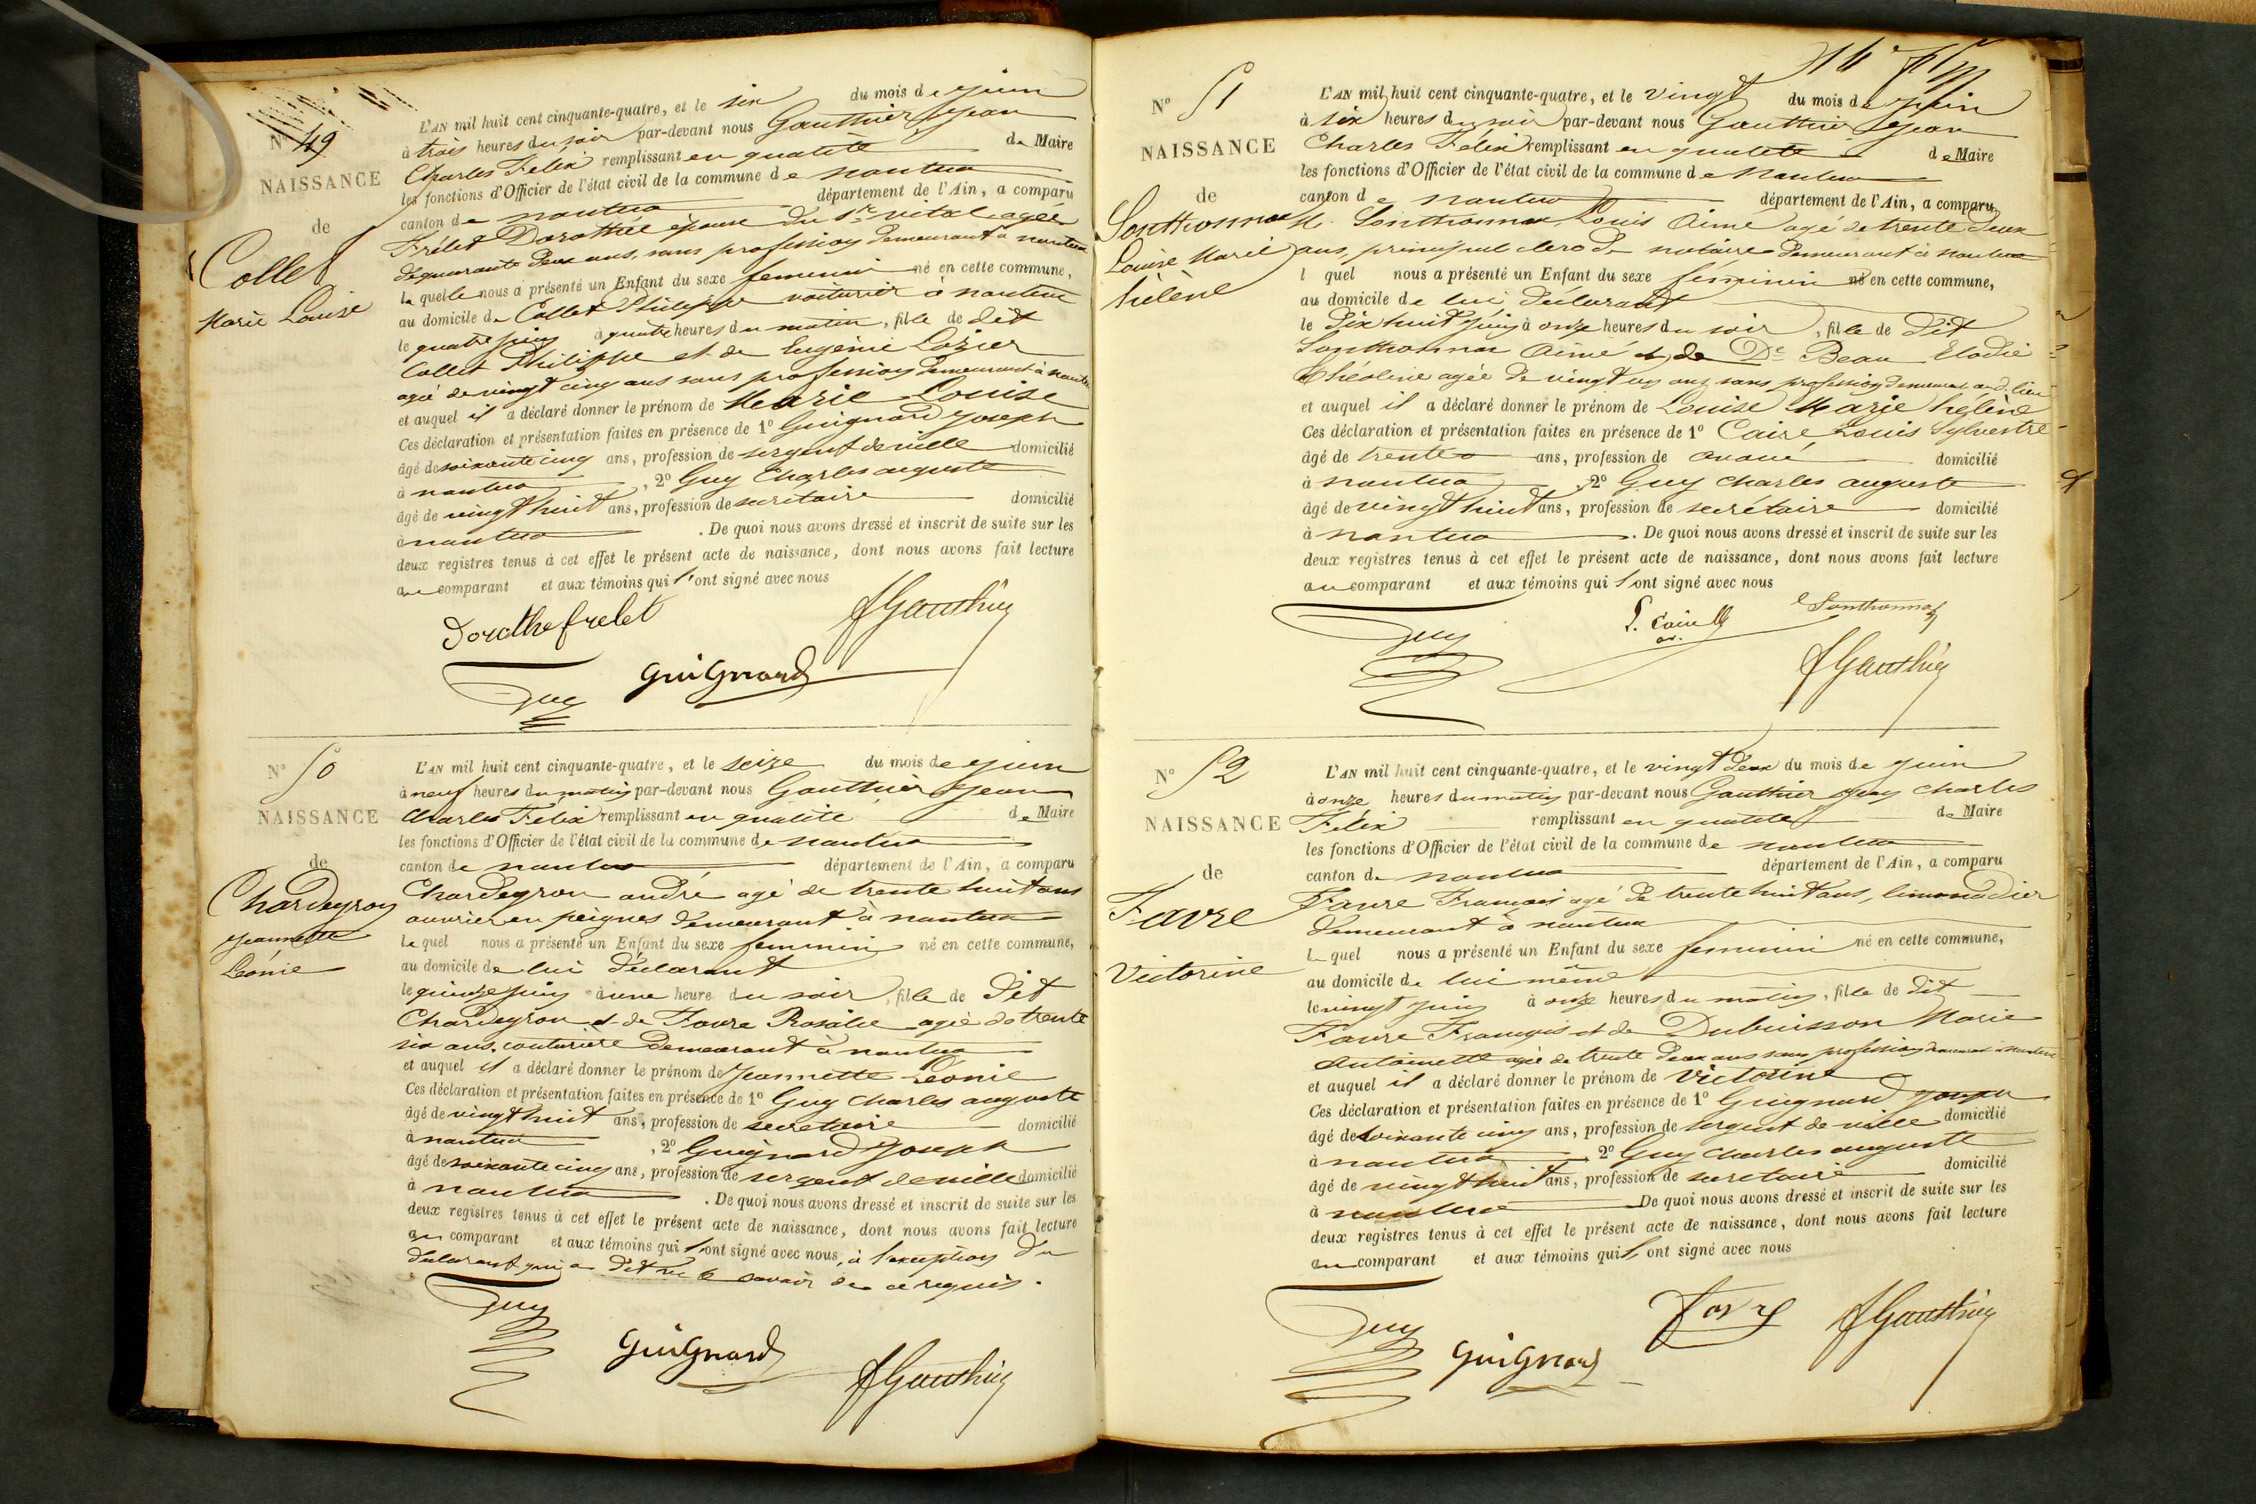 N° 49
NAISSANCE
de
Collet
Marie Louise
L'AN mil huit cent cinquante-quatre, et le six du mois de juin
à trois heures du soir par-devant nous Gauthier Jean
Charles Félix remplissant en qualité de Maire
les fonctions d'Officier de l'état civil de la commune de nantua
canton de nantua département de l'Ain, a comparu
Frélet Dorothée épouse du Sr vital agée
de quarante deux ans, sans profession demeurant à nantua
la quelle nous a présenté un Enfant du sexe feminin né en cette commune,
au domicile de Collet Philippe voiturier à nantua
le quatre juin à quatre heures du matin, fille de dit
Collet Philippe et de Eugénie Lozier
agée de vingt cinq ans sans profession demeurant à nantua
et auquel il a déclaré donner le prénom de Marie Louise
Ces déclaration et présentation faites en présence de 1° Guignard Joseph
âgé de soixante cinq ans, profession de sergent de ville domicilié
à nantua, 2° Guy Charles auguste
âgé de vingt huit ans, profession de secrétaire domicilié
à nantua. De quoi nous avons dressé et inscrit de suite sur les
deux registres tenus à cet effet le présent acte de naissance, dont nous avons fait lecture
au comparant et aux témoins qui l'ont signé avec nous
Dorothe frelet
JGauthier
Guignard
Guy
N° 50
NAISSANCE
de
Chardeyron
Jeannette
Léonie
L'AN mil huit cent cinquante-quatre, et le seize du mois de juin
à neuf heures du matin par-devant nous Gauthier Jean
Charles Félix remplissant en qualité de Maire
les fonctions d'Officier de l'état civil de la commune de nantua
canton de nantua département de l'Ain, a comparu
Chardeyron andré agé de trente huit ans
ouvrier en peignes demeurant à nantua
le quel nous a présenté un Enfant du sexe feminin né en cette commune,
au domicile de lui déclarant
le quinze juin à une heure du soir, fille de dit
Chardeyron et de Favre Rosalie agée de trente
six ans, couturière demeurant à nantua
et auquel il a déclaré donner le prénom de Jeannette Léonie
Ces déclaration et présentation faites en présence de 1° Guy Charles auguste
âgé de vingt huit ans, profession de secrétaire domicilié
à nantua, 2° Guignard Joseph
âgé de soixante cinq ans, profession de sergent de ville domicilié
à nantua. De quoi nous avons dressé et inscrit de suite sur les
deux registres tenus à cet effet le présent acte de naissance, dont nous avons fait lecture
au comparant et aux témoins qui l'ont signé avec nous, à l'exception du
déclarant qui a dit ne le savoir de ce requis.
Guy
Guignard
JGauthier
N° 51
NAISSANCE
de
Sonthonnax
Louise Marie
hélène
L'AN mil huit cent cinquante-quatre, et le vingt du mois de juin
à six heures du soir par-devant nous Gauthier Jean
Charles Félix remplissant en qualité de Maire
les fonctions d'Officier de l'état civil de la commune de Nantua
canton de nantua département de l'Ain, a comparu
M. Sonthonnax Louis Aimé agé de trente deux
ans, principal clerc de notaire demeurant à nantua
l quel nous a présenté un Enfant du sexe féminin né en cette commune,
au domicile de lui déclarant
le dix huit juin à onze heures du soir, fille de dit
Sonthonnax Aimé et de De Beau Elodie
agée de vingt ans, sans profession demeurant au d. lieu
et auquel il a déclaré donner le prénom de Louise Marie hélène
Ces déclaration et présentation faites en présence de 1° Caire Louis Sylvestre
âgé de trente ans, profession de avoué domicilié
à nantua, 2° Guy charles auguste
âgé de vingt huit ans, profession de secrétaire domicilié
à nantua. De quoi nous avons dressé et inscrit de suite sur les
deux registres tenus à cet effet le présent acte de naissance, dont nous avons fait lecture
au comparant et aux témoins qui l'ont signé avec nous
Sonthonnax
L. Caire
Guy
JGauthier
N° 52
NAISSANCE
de
Favre
Victorine
L'AN mil huit cent cinquante-quatre, et le vingt deux du mois de juin
à onze heures du matin par-devant nous Gauthier Jean Charles
Félix remplissant en qualité de Maire
les fonctions d'Officier de l'état civil de la commune de nantua
canton de nantua département de l'Ain, a comparu
Favre François agé de trente huit ans, limonadier
demeurant à nantua
le quel nous a présenté un Enfant du sexe feminin né en cette commune,
au domicile de lui même
le vingt juin à onze heures du matin, fille de dit
Favre François et de Dubuisson Marie
Antoinette agée de trente deux ans sans profession demeurant à nantua
et auquel il a déclaré donner le prénom de Victorine
Ces déclaration et présentation faites en présence de 1° Guignard Joseph
âgé de soixante cinq ans, profession de sergent de ville domicilié
à nantua, 2° Guy Charles auguste
âgé de vingt huit ans, profession de secretaire domicilié
à nantua De quoi nous avons dressé et inscrit de suite sur les
deux registres tenus à cet effet le présent acte de naissance, dont nous avons fait lecture
au comparant et aux témoins qui l'ont signé avec nous
Favre
JGauthier
Guy
Guignard